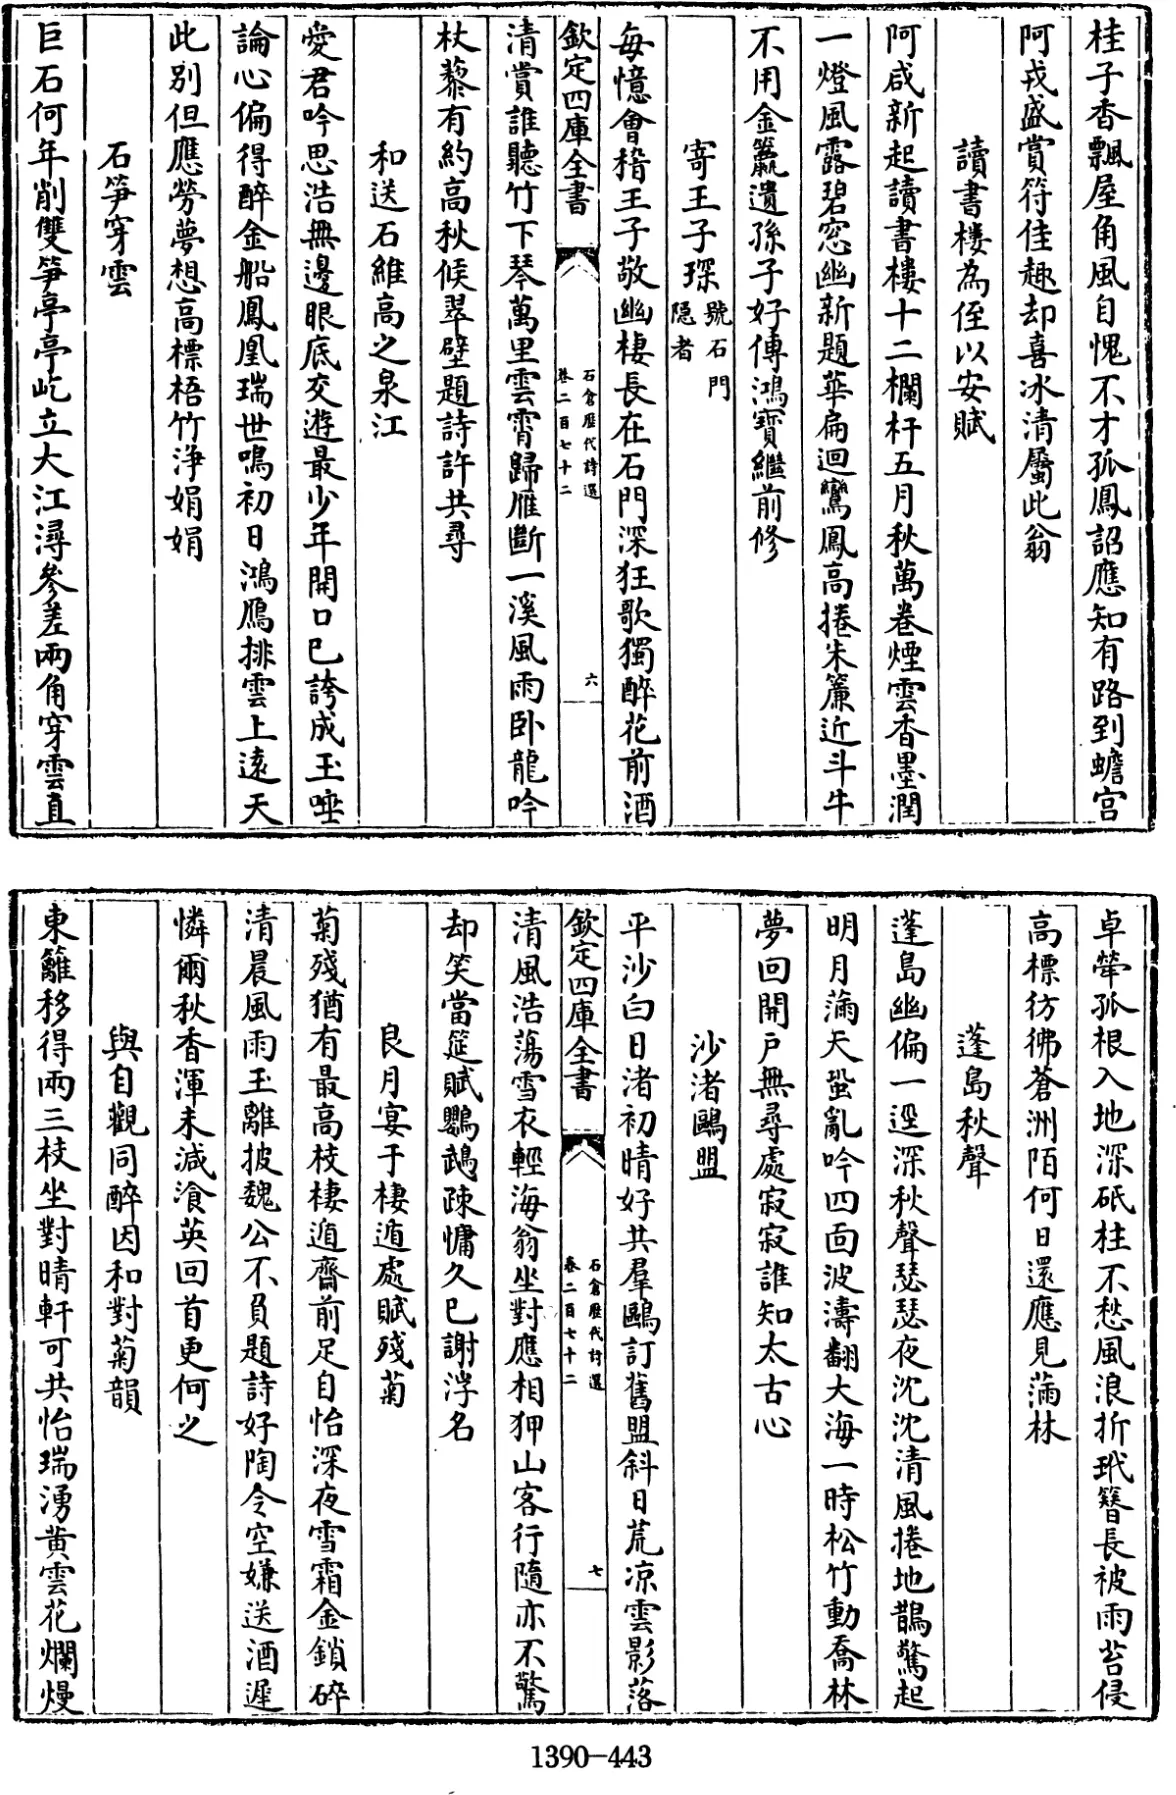 桂子香飄屋角風自愧不才孤鳳詔應知有路到蟾宫
阿戎盛賞符佳趣却喜冰清屬此翁
讀書樓為侄以安賦
阿咸新起讀書樓十二欄杆五月秋萬卷煙雲香墨潤
一燈風露碧窓幽新題華扁迴鸞鳳高捲朱簾近斗牛
不用金籯遺孫子好傳鴻寶繼前修
寄王子琛號石門隠者
每憶會稽王子敬幽棲長在石門深狂歌獨醉花前酒
欽定四庫全書
石倉歷代詩選
卷二百七十二
六
清賞誰聽竹下琴萬里雲霄歸雁斷一溪風雨卧龍吟
杖藜有約高秋候翠壁題詩許共尋
和送石維高之泉江
愛君吟思浩無邊眼底交遊最少年開口已誇成玉唾
論心偏得醉金船鳳凰瑞世鳴初日鴻鴈排雲上逺天
此别但應勞夢想高標梧竹淨娟娟
石笋穿雲
巨石何年削雙笋亭亭屹立大江潯參差兩角穿雲直
卓犖孤根入地深砥柱不愁風浪折玳簪長被雨苔侵
高標彷彿蒼洲陌何日還應見滿林
蓬島秋聲
蓬島幽偏一逕深秋聲瑟瑟夜沈沈清風捲地鵲驚起
明月滿天蛩亂吟四面波濤翻大海一時松竹動喬林
夢回開户無尋處寂寂誰知太古心
沙渚鷗盟
平沙白日渚初晴好共羣鷗訂舊盟斜日荒凉雲影落
欽定四庫全書
石倉歷代詩選
卷二百七十二
七
清風浩蕩雪衣輕海翁坐對應相狎山客行隨亦不驚
却笑當筵賦鸚鵡疎慵久已謝浮名
良月宴于棲遁處賦殘菊
菊殘猶有最高枝棲遁齋前足自怡深夜雪霜金鎖碎
清晨風雨玉離披魏公不負題詩好陶令空嫌送酒遲
憐爾秋香渾未減飡英回首更何之
與自觀同醉因和對菊韻
東籬移得兩三枝坐對晴軒可共怡瑞湧黄雲花爛熳
1390-443